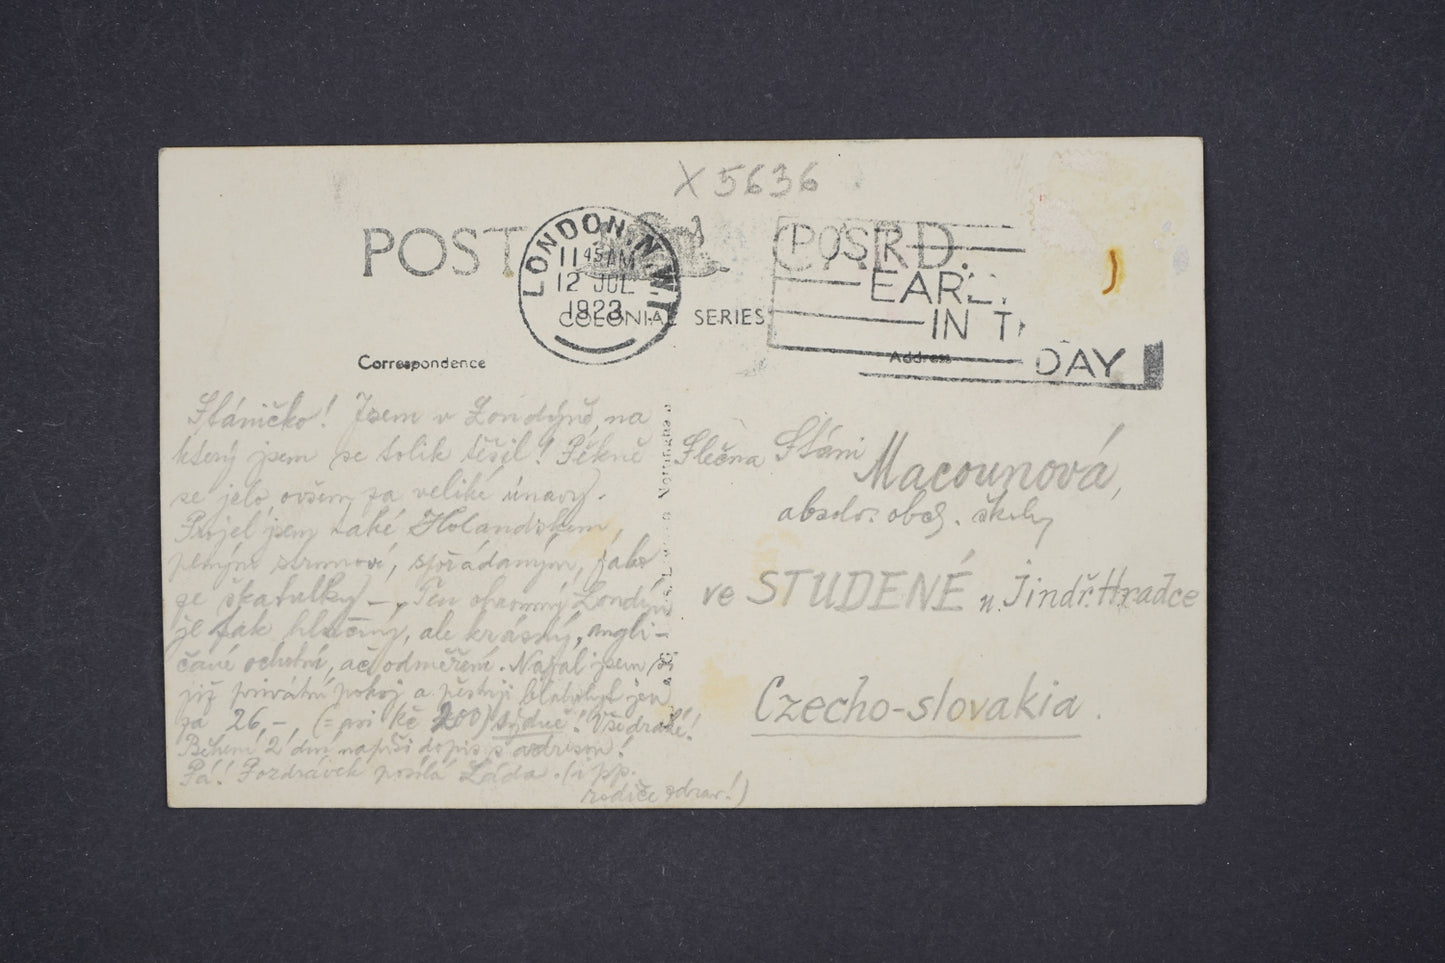 X 5636
POST CARD.
LONDON. N.W.1.
11 45 AM
12 JUL
1923
POST
EARLY
IN TH
DAY
COLONIAL SERIES
Correspondence
Address
Stáničko! Jsem v Londýně, na
který jsem se tolik těšil! Pěkně
se jelo, ovšem za veliké únavy.
Projel jsem také Holandskem,
plným stromoví, spořádaným, jako
ze škatulky –. Ten ohromný Londýn
je pak hlučný, ale krásný, angli-
čané ochotní, ač odměření. Najal jsem si
již privátní pokoj a
za 26,–, (= asi kč 200) týdně! Vše drahé!
Během 2 dnů napíši dopis s adresou!
Pá! Pozdrávek posílá Láda. (i pp.
rodiče zdraví!)
Slečna Stáni
Macounová,
absolv. obch. školy
ve STUDENÉ u Jindř. Hradce
Czecho-slovakia.